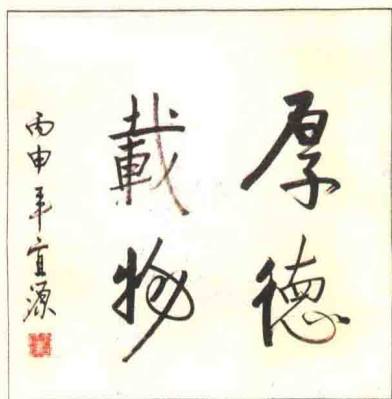 厚德
載物
丙申年宜源